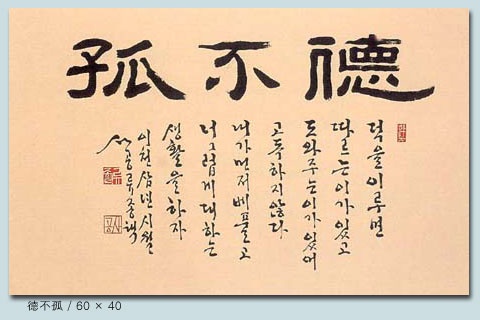 德不孤
덕을 이루면
따르는 이가 있고
도와주는 이가 있어
고독하지 않다
내가 먼저 베풀고
너그럽게 대하는
생활을 하자
이천삼년 시월
류종혁
德不孤 / 60 × 40